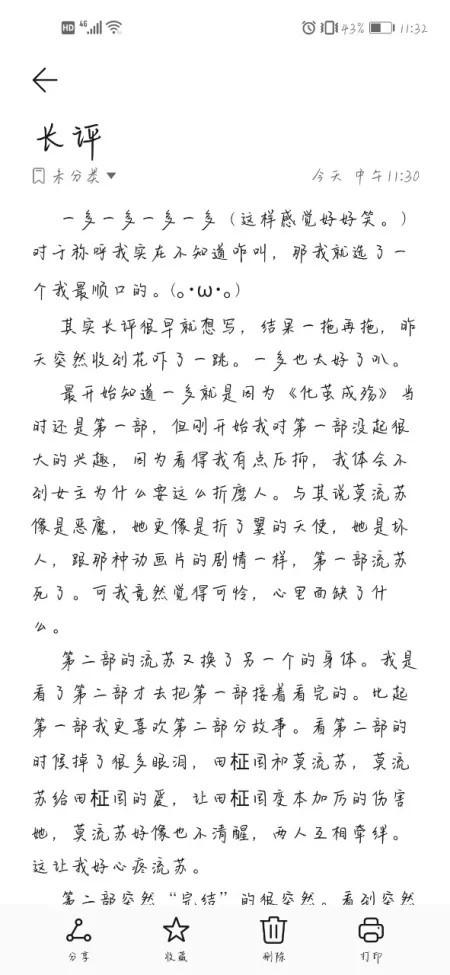 HD 4G 43% 11:32
长评
未分类 今天 中午11:30
一多一多一多一多（这样感觉好好笑。）
对于称呼我实在不知道咋叫，那我就选了一
个我最顺口的。(｡･ω･｡)
其实长评很早就想写，结果一拖再拖，昨
天突然收到花吓了一跳。一多也太好了叭。
最开始知道一多就是因为《化茧成殇》当
时还是第一部，但刚开始我对第一部没起很
大的兴趣，因为看得我有点压抑，我体会不
到女主为什么要这么折磨人。与其说莫流苏
像是恶魔，她更像是折了翼的天使，她是坏
人，跟那种动画片的剧情一样，第一部流苏
死了。可我竟然觉得可怜，心里面缺了什
么。
第二部的流苏又换了另一个的身体。我是
看了第二部才去把第一部接着看完的。比起
第一部我更喜欢第二部分故事。看第二部的
时候掉了很多眼泪，田柾国和莫流苏，莫流
苏给田柾国的爱，让田柾国变本加厉的伤害
她，莫流苏好像也不清醒，两人互相牵绊。
这让我好心疼流苏。
第二部突然“完结”的很突然。看到突然
分享 收藏 删除 打印